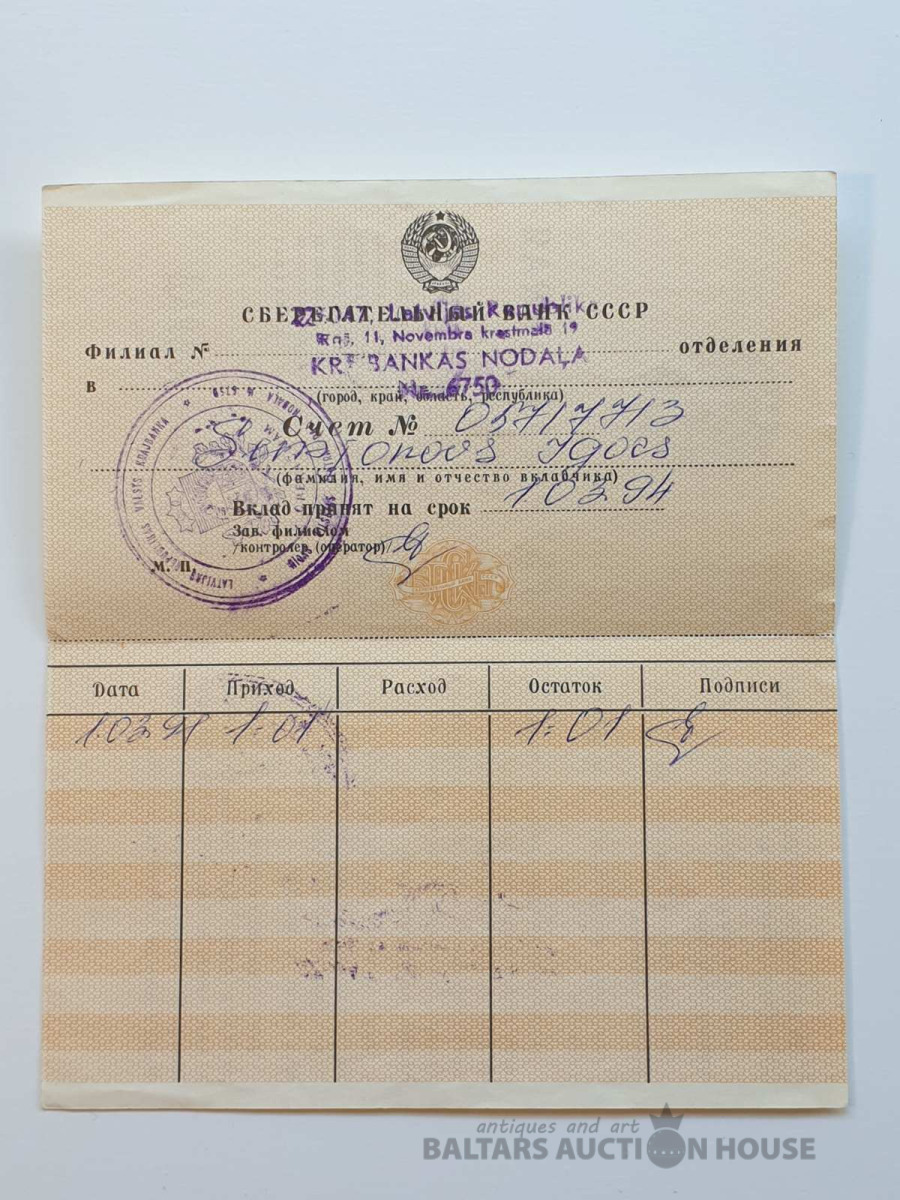 СБЕРЕГАТЕЛЬНЫЙ БАНК СССР
Latvijas Republika
11, Novembra krastmalā 19
Филиал № отделения
BANKAS NODAĻA
в
Nr. 6750
(город, край, область, республика)
Счет № 05717713
Igors
(фамилия, имя и отчество вкладчика)
Вклад принят на срок 10394
Зав. филиалом
/контролер (оператор)/
М. П.
LATVIJAS VALSTS KRĀJBANKA
Дата Приход Расход Остаток Подписи
10394 1-01 1-01
antiques and art
BALTARS AUCTION HOUSE